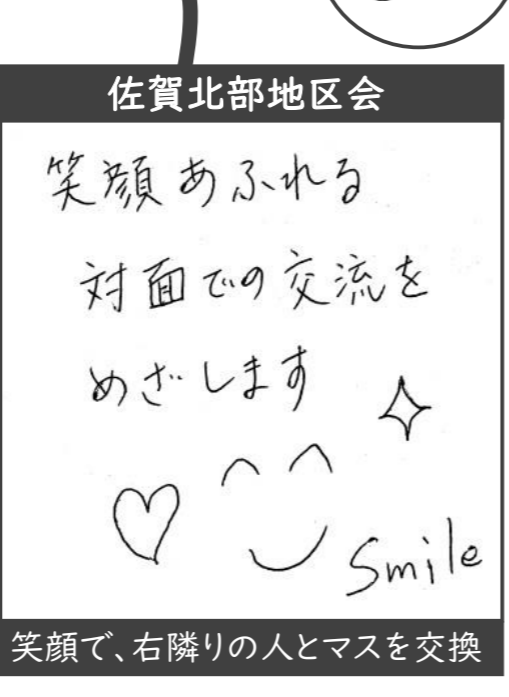 佐賀北部地区会
笑顔あふれる
対面での交流を
めざします
Smile
笑顔で、右隣りの人とマスを交換